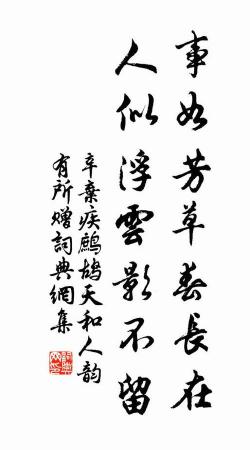 事如芳草春長在
人似浮雲影不留
辛棄疾鷓鴣天和人韵
有所贈詞典網集